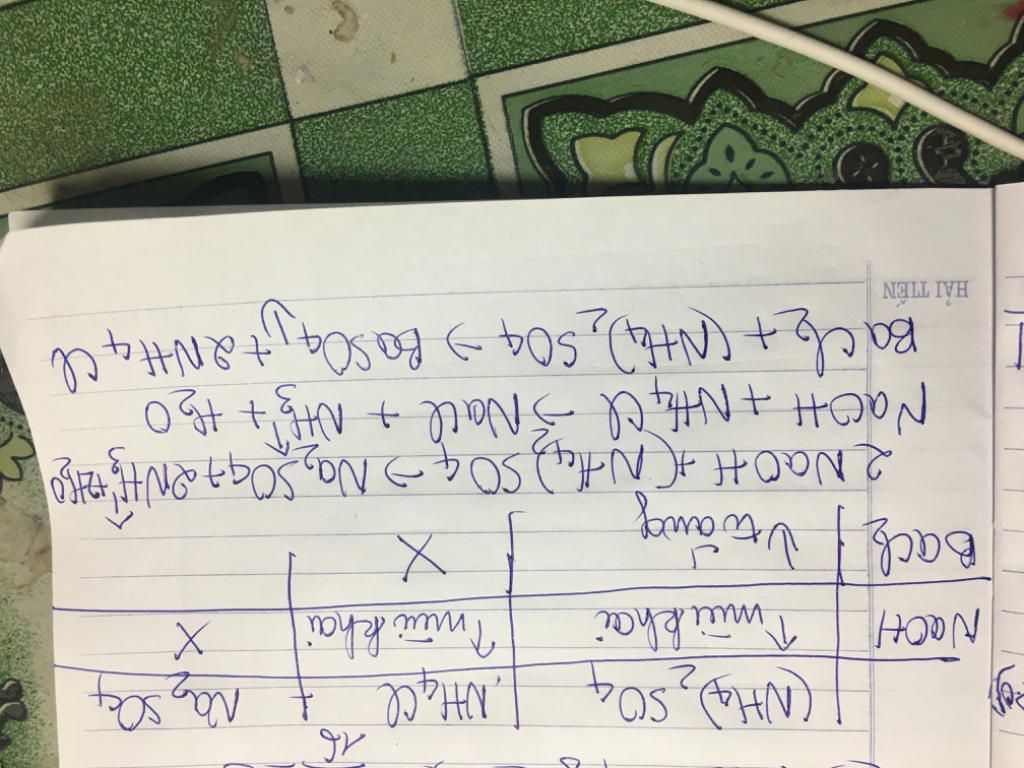 16
(NH4)2SO4 NH4Cl Na2SO4
NaOH ↑ mùi khai ↑ mùi khai X
BaCl2 ↓ trắng X
2NaOH + (NH4)2SO4 → Na2SO4 + 2NH3↑ + 2H2O
NaOH + NH4Cl → NaCl + NH3↑ + H2O
BaCl2 + (NH4)2SO4 → BaSO4↓ + 2NH4Cl
HẢI TIẾN